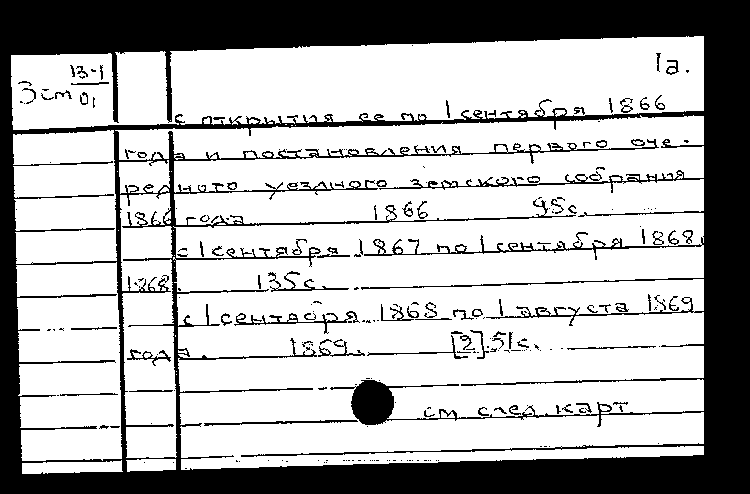 1а.
13-1
Зст 01
с открытия ее по 1 сентября 1866
года и постановления первого оче-
редного уездного земского собрания
1866 года 1866. 98с.
с 1 сентября 1867 по 1 сентября 1868,
1868. 135с.
с 1 сентября 1868 по 1 августа 1869
года. 1869. [2].51с.
см след. карт.